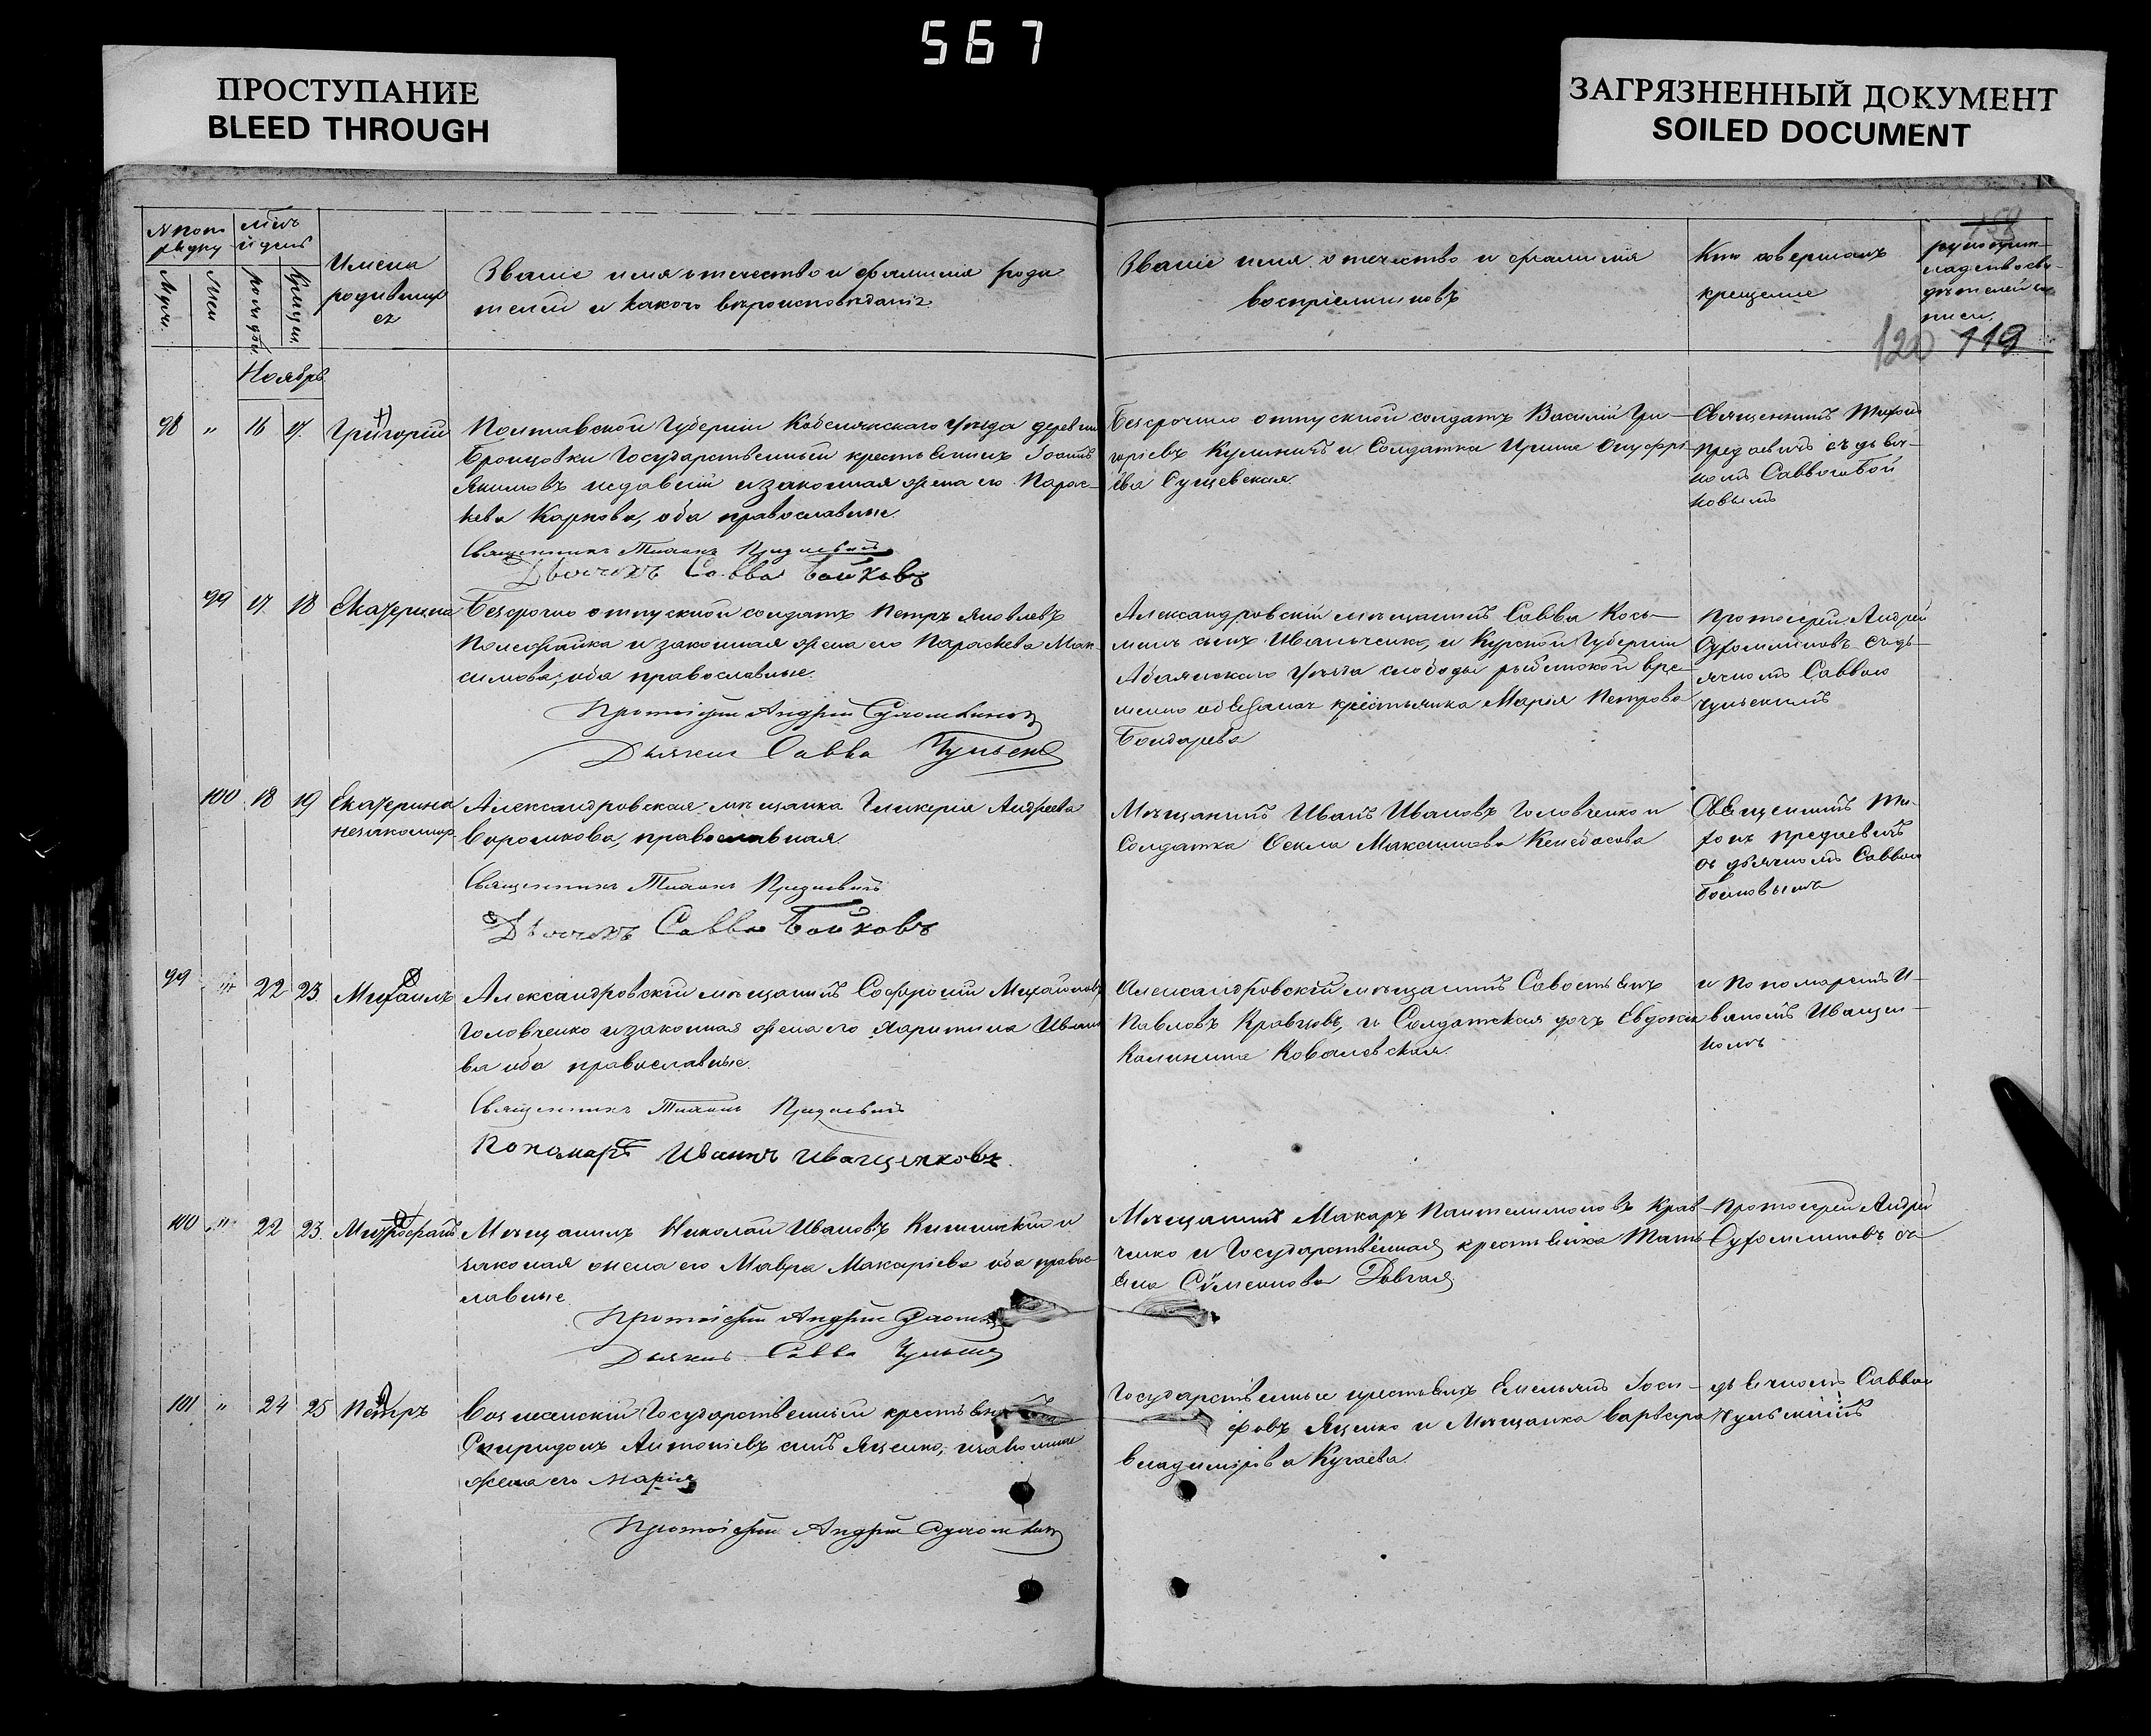 567
ПРОСТУПАНИЕ
BLEED THROUGH
ЗАГРЯЗНЕННЫЙ ДОКУМЕНТ
SOILED DOCUMENT
Имена
родивших
ся
Званіе имя отечество и фамилія роди
телей и какого вѣроисповѣданія
Званіе имя отечество и фамилія
воспріемниковъ
Кто совершалъ
крещеніе
120 119
Ноябрь
98 " 16 17 Григорій
Полтавской Губерніи Кобелякскаго Уѣзда деревни
Государственный крестьянинъ Іоаннъ
и законная жена его Парас-
кева Карпова, оба православные.
Священникъ Тихонъ
Дьячекъ Савва Бойковъ
Безсрочно отпускной солдатъ Василій Гри-
горіевъ Кулиничъ и Солдатка Ирина Онуфрі-
ева Сущевская.
Священникъ Тихонъ
съ дьяч-
комъ Саввою Бой
ковымъ
99 17 18 Екатерина
Безсрочно отпускной солдатъ Петръ Яковлевъ
и законная жена его Параскева Мак-
симова, оба православные.
Протоіерей Андрей Сухомлиновъ
Дьячекъ Савва
Александровскій мѣщанинъ Савва Кось-
минъ сынъ Иванченко, и Курской Губерніи
Обаянскаго Уѣзда слободы вре-
менно обязанная крестьянка Марія Петрова
Бондарева
Протоіерей Андрей
Сухомлиновъ съ дь-
ячкомъ Саввою
100 18 19 Екатерина
незаконнор.
Александровская мѣщанка Гликерія Андреева
Воронкова, православная.
Священникъ Тихонъ
Дьячекъ Савва Бойковъ
Мѣщанинъ Иванъ Ивановъ Головченко и
Солдатка Фекла Максимова
Священникъ Ти-
хонъ
съ дьячкомъ Саввою
Бойковымъ
99 " 22 23 Михаилъ
Александровскій мѣщанинъ Софроній Михайловъ
Головченко и законная жена его Харитина Ивано
ва оба православные.
Священникъ Тихонъ
Пономарь Иванъ Иващенковъ.
Александровскій мѣщанинъ Савостьянъ
Павловъ Кравцовъ, и Солдатская дочь Евдокія
Калинина Ковалевская.
и Пономаремъ И-
ваномъ Иващен-
комъ
100 " 22 23 Митрофанъ
Мѣщанинъ Николай Ивановъ и
законая жена его Мавра Макаріева оба право-
славные.
Протоіерей Андрей Сухомлиновъ
Дьячекъ Савва
Мѣщанинъ Макаръ Пантелимоновъ Крав-
ченко и Государственная крестьянка Тать-
яна Сѵмеонова Довгая
Протоіерей Андрей
Сухомлиновъ съ
101 " 24 25 Петръ
Вознесенскій Государственный
Спиридонъ Антоніевъ сынъ Яценко, и законная
жена его Марія
Протоіерей Андрей Сухомлиновъ
Государственные крестьянинъ Емельянъ Іоси-
фовъ Яценко и Мѣщанка Варвара
Владимірова
дьячкомъ Саввою